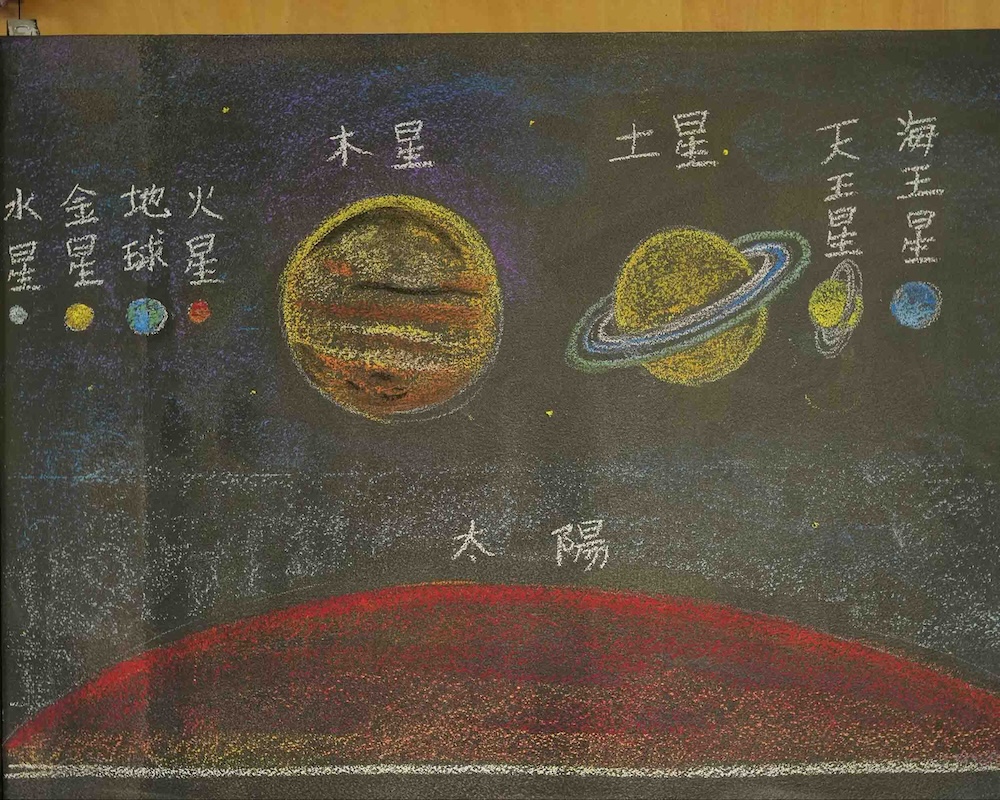 水星
金星
地球
火星
木星
土星
天王星
海王星
太陽